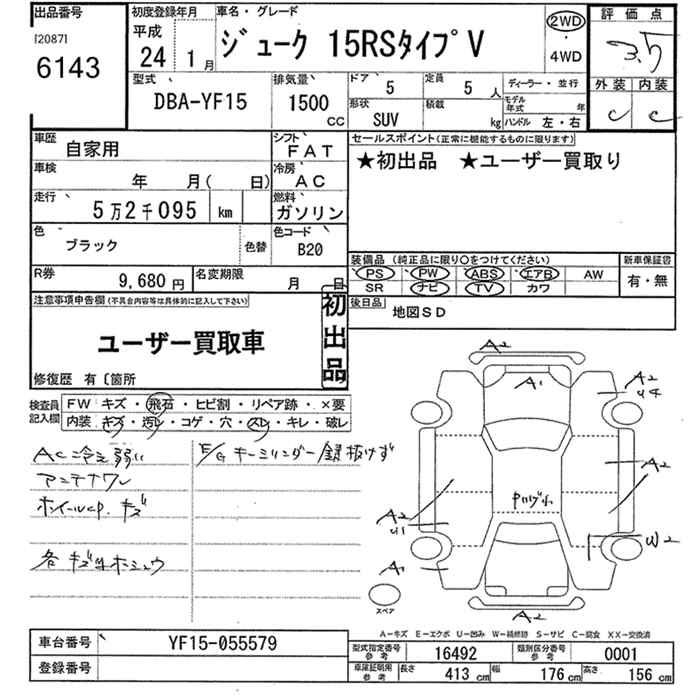 出品番号
[2087]
6143
初度登録年月
平成
24年 1月
車名・グレード
ジューク 15RSタイプV
2WD
・
4WD
評価点
3.5
外装 内装
C C
型式
DBA-YF15
排気量
1500 CC
ドア 5
定員 5人
ディーラー・並行
形状 SUV
積載 kg
モデル年式 年
ハンドル 左・右
車歴 自家用
シフト FAT
車検 年 月( 日)
冷房 AC
走行 5万2千095 km
燃料 ガソリン
色 ブラック
色替
色コード B20
R券 9,680円
名変期限 月 日
セールスポイント(正常に機能するものに限ります)
★初出品 ★ユーザー買取り
装備品 (純正品に限り○をつけてください)
PS PW ABS エアB AW
SR ナビ TV カワ
新車保証書
有・無
後日品 地図SD
注意事項申告欄(不具合内容等は具体的に記入して下さい)
ユーザー買取車
初出品
修復歴 有〔箇所
検査員記入欄
FW キズ・飛石・ヒビ割・リペア跡・×要
内装 キズ・汚レ・コゲ・穴・スレ・キレ・破レ
AC冷え弱い
アンテナワレ
ホイールcap. キズ
各キズ凹ホシュウ
E/Gキーシリンダー鍵抜けず
A2
A1
A2
U4
A2
A2
U1
W2
A1
A2
スペア
A-キズ E-エクボ U-凹み W-補修跡 S-サビ C-腐食 XX-交換済
車台番号 YF15-055579
登録番号
型式指定番号 参考 16492
類別区分番号 参考 0001
車庫証明用 参考 長さ 413cm 幅 176cm 高さ 156cm